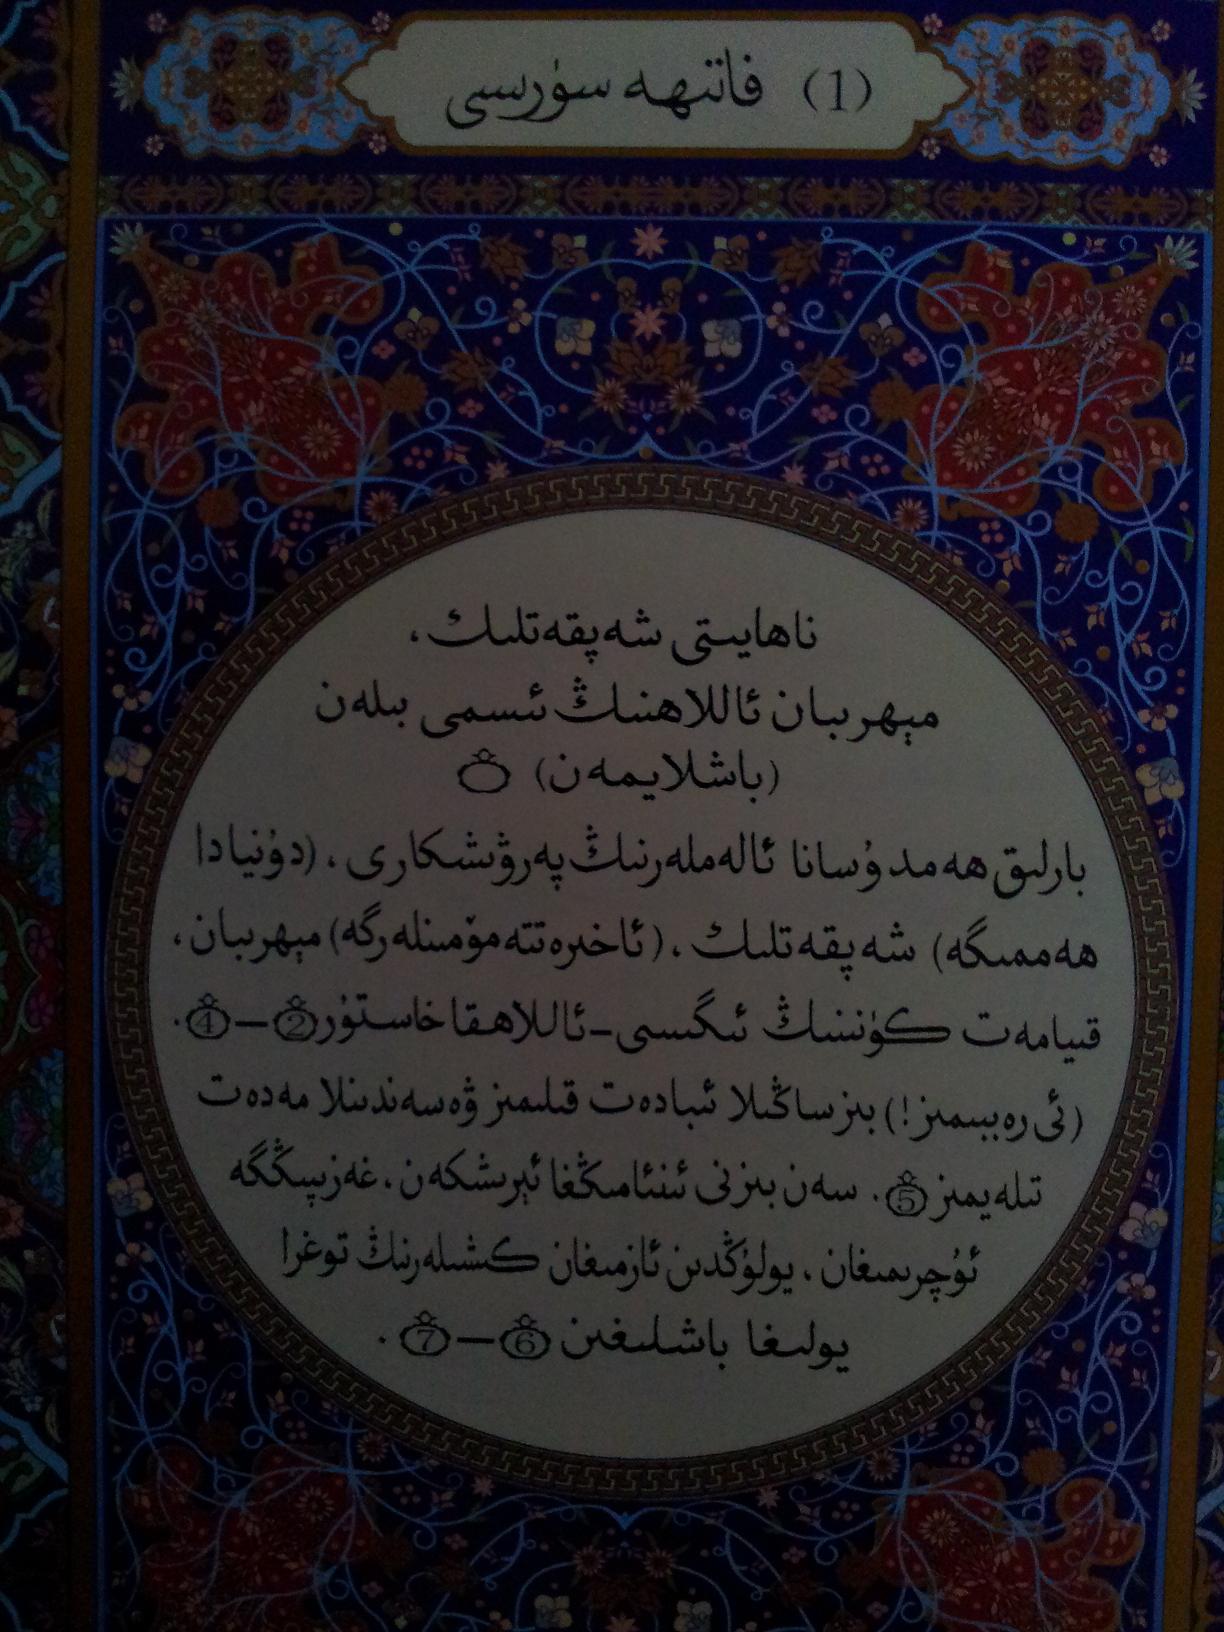 (1) فاتىھە سۈرىسى
ناھايىتى شەپقەتلىك،
مېھرىبان ئاللاھنىڭ ئىسمى بىلەن
(باشلايمەن)
بارلىق ھەمدۇسانا ئالەملەرنىڭ پەرۋىشكارى، (دۇنيادا
ھەممىگە) شەپقەتلىك، (ئاخىرەتتە مۆمىنلەرگە) مېھرىبان،
قىيامەت كۈنىنىڭ ئىگىسى-ئاللاھقا خاستۇر②—④.
(ئى رەببىمىز!) بىز ساڭىلا ئىبادەت قىلىمىز ۋە سەندىنلا مەدەت
تىلەيمىز⑤. سەن بىزنى ئىنئامىڭغا ئېرىشكەن، غەزىپىڭگە
ئۇچرىمىغان، يولۇڭدىن ئازمىغان كىشىلەرنىڭ توغرا
يولىغا باشلىغىن⑥—⑦.